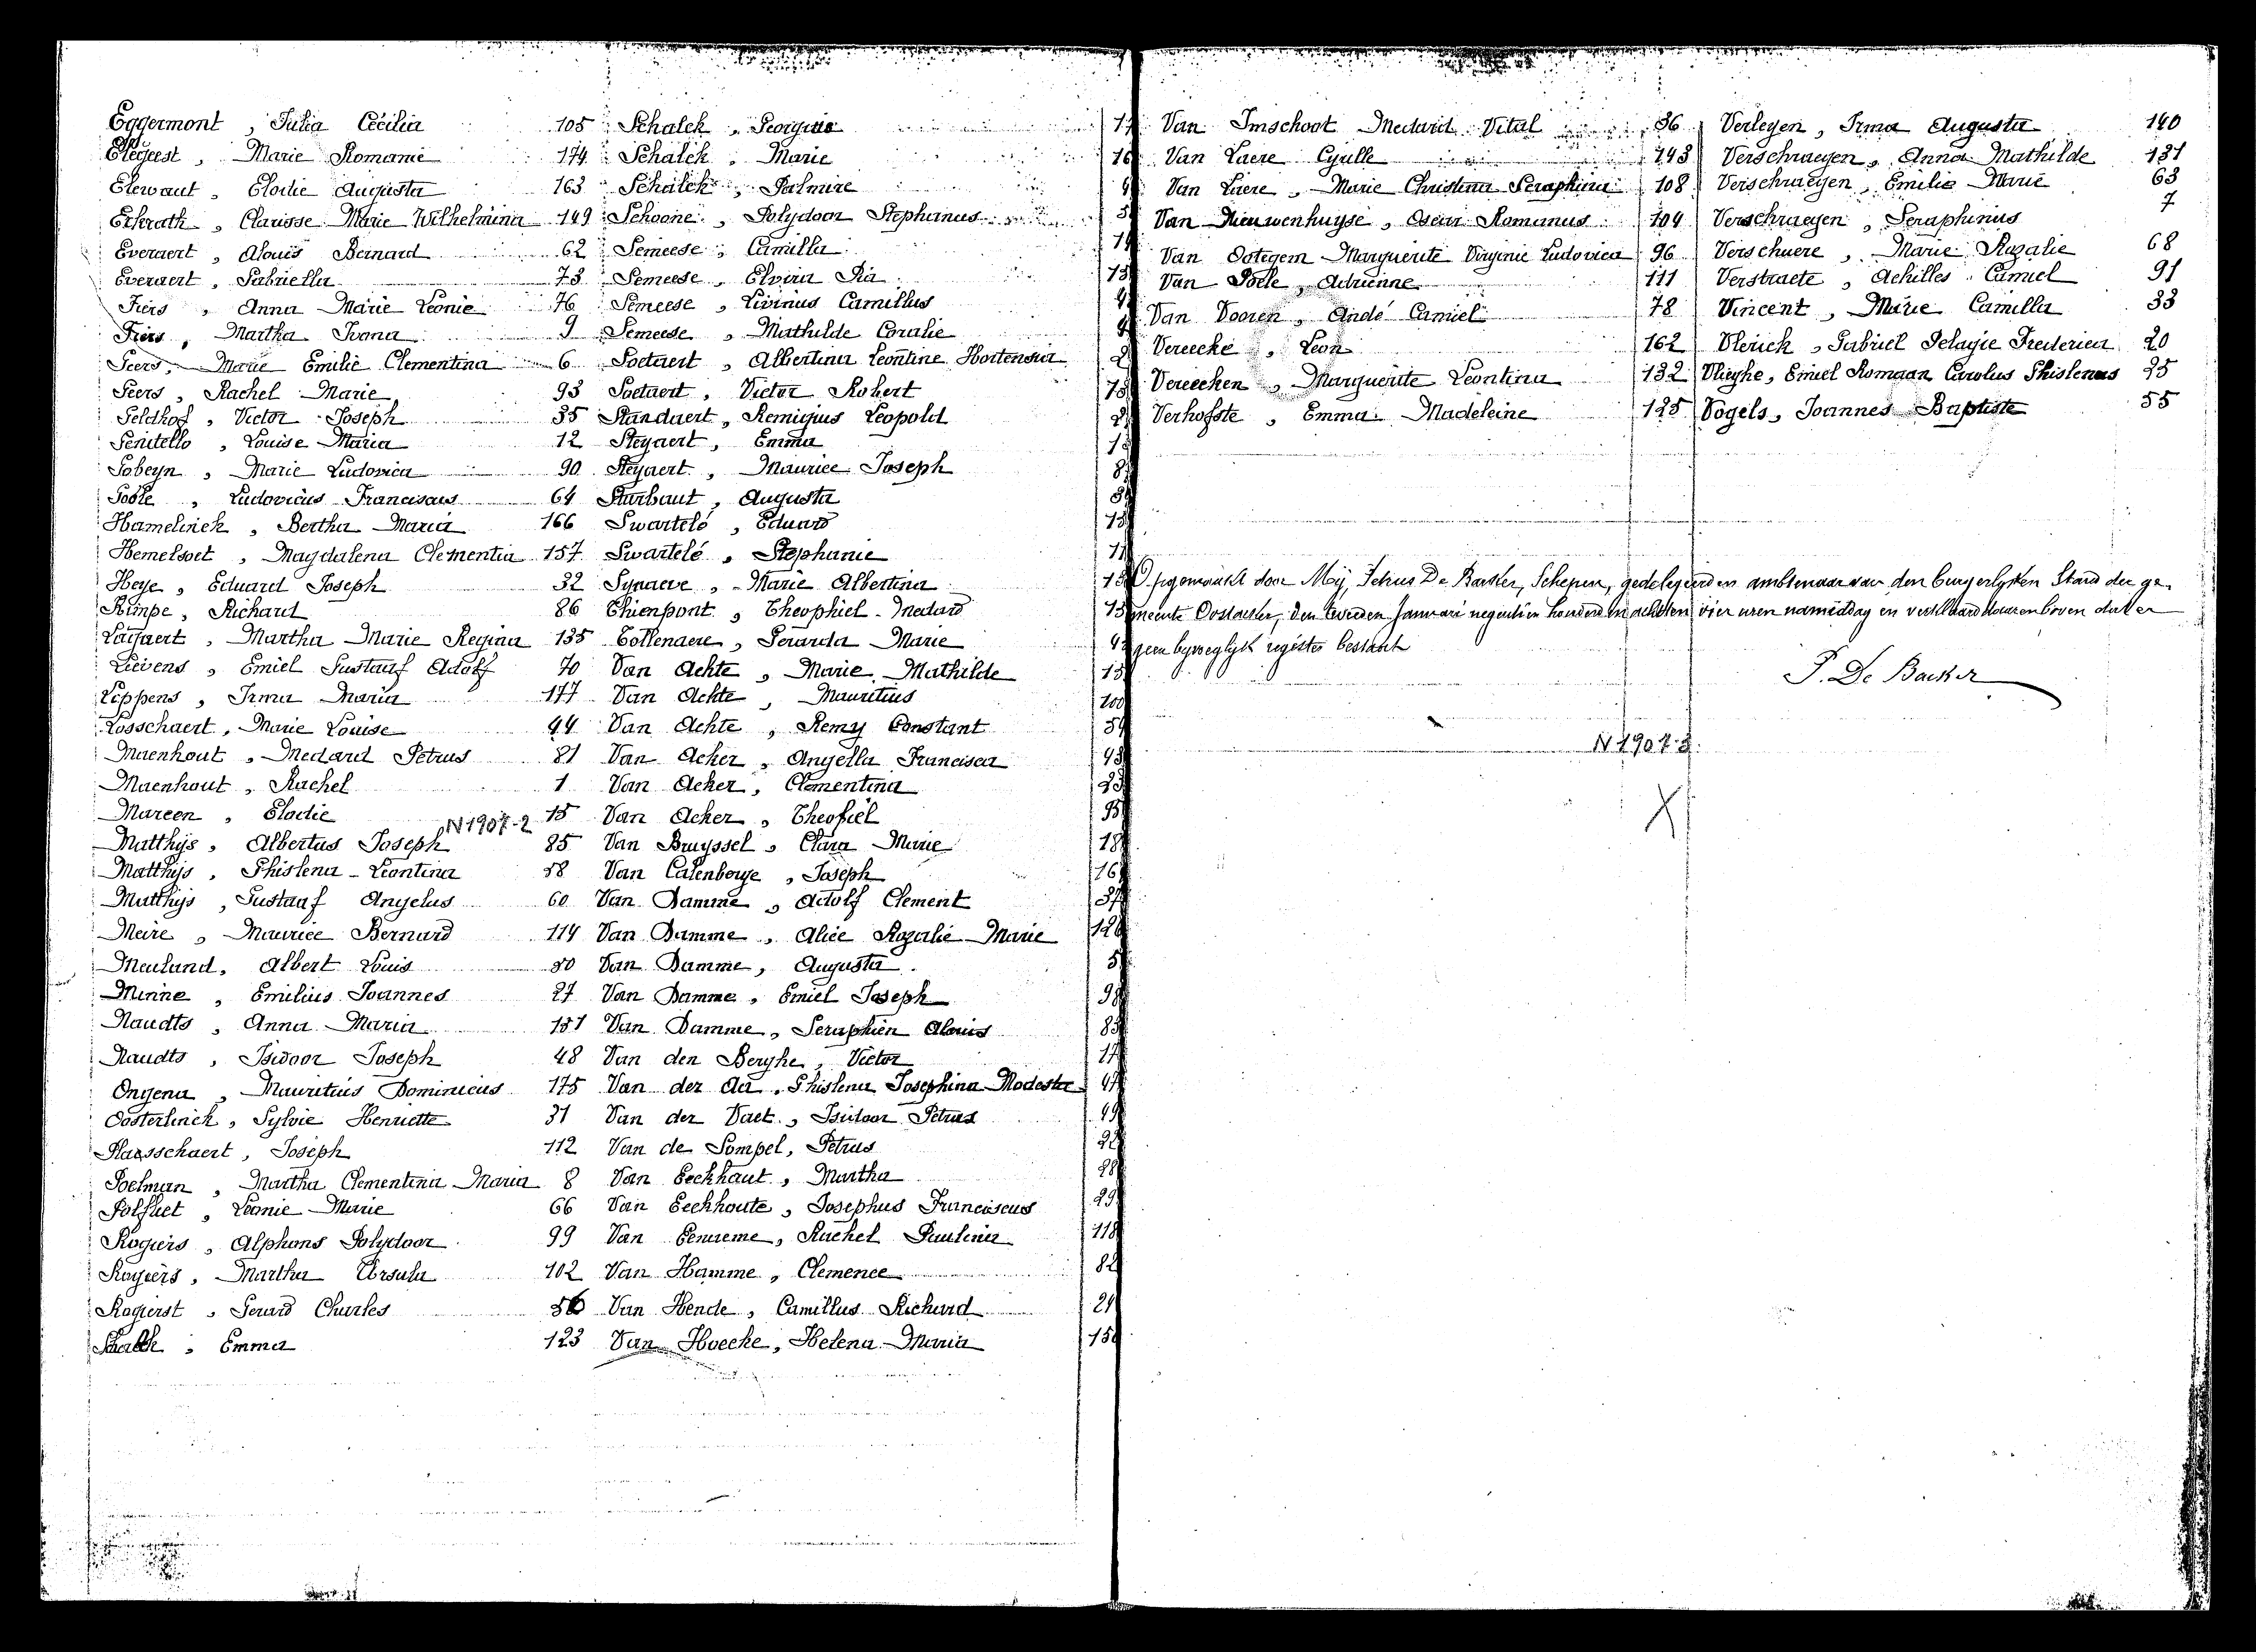 Eggermont, Julia Cecilia 105
Elegeest, Marie Romanie 174
Elewaut, Elodie Augusta 163
Erkrath, Clarisse Marie Wilhelmina 149
Everaert, Alouis Bernard 62
Everaert, Gabriella 73
Fiers, Anna Marie Leonie 76
Fiers, Martha Ivona 9
Geers, Marie Emilie Clementina 6
Geers, Rachel Marie 93
Geldhof, Victor Joseph 35
Genitello, Louise Maria 12
Gobeyn, Marie Ludovica 90
Goole, Ludovicus Franciscus 64
Hamelinck, Bertha Maria 166
Hemelsoet, Magdalena Clementia 157
Heye, Eduard Joseph 32
Kimpe, Richard 86
Lagaert, Martha Marie Regina 135
Lievens, Emiel Gustaaf Adolf 70
Lippens, Irma Maria 177
Losschaert, Marie Louise 44
Maenhout, Medard Petrus 81
Maenhout, Rachel 1
Mareen, Elodie 15
N 1907-2
Matthijs, Albertus Joseph 85
Matthijs, Ghislena Leontina 58
Matthijs, Gustaaf Angelus 60
Meire, Maurice Bernard 114
Meuland, Albert Louis 50
Minne, Emilius Joannes 27
Naudts, Anna Maria 151
Naudts, Isidoor Joseph 48
Ongena, Mauritius Dominicus 175
Oosterlinck, Sylvie Henriette 31
Plasschaert, Joseph 112
Poelman, Martha Clementina Maria 8
Polfliet, Leonie Marie 66
Rogiers, Alphons Polydoor 99
Rogiers, Martha Ursula 102
Rogierst, Gerard Charles 56
Schalck, Emma 123
Schalck, Georgette
Schalck, Marie
Schalck, Palmire
Schoone, Polydoor Stephanus
Semeese, Camilla
Semeese, Elvira Pia
Semeese, Livinus Camillus
Semeese, Mathilde Coralie
Soetaert, Albertina Leontine Hortensia
Soetaert, Victor Robert
Standaert, Remigius Leopold
Steyaert, Emma
Steyaert, Maurice Joseph
Sturbaut, Augusta
Swartelé, Eduard
Swartelé, Stephanie
Synaeve, Marie Albertina
Thienpont, Theophiel Medard
Tollenaere, Gerarda Marie
Van Achte, Marie Mathilde
Van Achte, Mauritius
Van Achte, Remy Constant
Van Acker, Angella Francisca
Van Acker, Clementina
Van Acker, Theofiel
Van Bruyssel, Clara Marie
Van Calenberge, Joseph
Van Damme, Adolf Clement
Van Damme, Alice Rozalie Marie
Van Damme, Augusta
Van Damme, Emiel Joseph
Van Damme, Seraphien Alouis
Van den Berghe, Victor
Van der Aa, Ghislena Josephina Modesta
Van der Vaet, Isidoor Petrus
Van de Sompel, Petrus
Van Eeckhaut, Martha
Van Eeckhoute, Josephus Franciscus
Van Eenaeme, Rachel Paulina 118
Van Hamme, Clemence 82
Van Hende, Camillus Richard
Van Hoecke, Helena Maria
Van Imschoot Medard Vital 36
Van Laere Cyrille 143
Van Laere, Marie Christina Seraphina 108
Van Nieuwenhuyse, Oscar Romanus 104
Van Ootegem Marguerite Virginie Ludovica 96
Van Poele, Adrienne 111
Van Vooren, André Camiel 78
Vereecke, Leon 162
Vereecken, Marguerite Leontina 132
Verhofste, Emma Madeleine 125
Verleyen, Irma Augusta 140
Verschraegen, Anna Mathilde 131
Verschraegen, Emilie Marie 63
Verschraegen, Seraphinus 7
Verschuere, Marie Rozalie 68
Verstraete, Achilles Camiel 91
Vincent, Marie Camilla 33
Vlerick, Gabriel Pelagie Frederica 20
Vlieghe, Emiel Romaan Carolus Ghislenus 25
Vogels, Joannes Baptiste 55
Opgemaakt door Mij, Petrus De Backer, Schepen, gedelegeerden ambtenaar van den burgerlyken Stand der ge-
meente Oostacker, den tweeden Januari negentien honderd en achtten vier uren namiddag en verklaard daarenboven dat er
geen byvoeglyk register bestaat
P. De Backer
N 1907-2
X